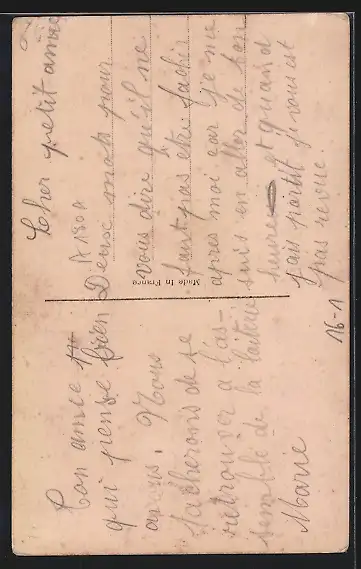 Cher petit amie
Deux mots pour
vous dire qu'il ne
faut pas etre fachér
apres moi car je me
suis en aller de bon
heure et quand
jais partit je vous est
pas revue.
16-1
A 180 A
Made in France
Ton amie
qui pense bien
amis. Nous
tacherons de se
retrouver a l'as-
semblé de la laiterie
Marie